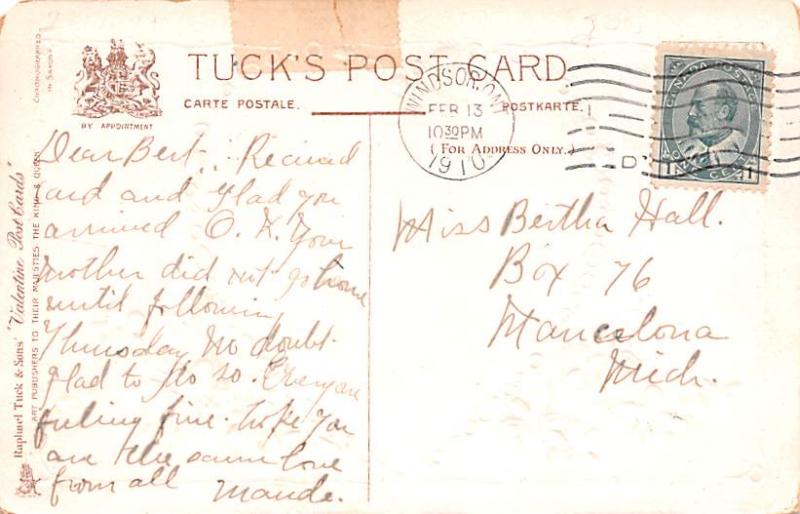 TUCK'S POST CARD
CARTE POSTALE.
POSTKARTE.
(FOR ADDRESS ONLY.)
BY APPOINTMENT
CHROMOGRAPHED
IN SAXONY
Raphael Tuck & Sons' "Valentine Post Cards"
ART PUBLISHERS TO THEIR MAJESTIES THE KING & QUEEN
WINDSOR, ONT
FEB 13
1030PM
1910
D
CANADA POSTAGE
1 ONE CENT 1
Dear Bert. Recieved
card and glad you
arrived O.K. Your
mother did not go home
until following
Thursday no doubt
glad to do so. Everyone
feeling fine. hope you
are the same love
from all Maude.
Miss Bertha Hall.
Box 76
Mancelona
Mich.